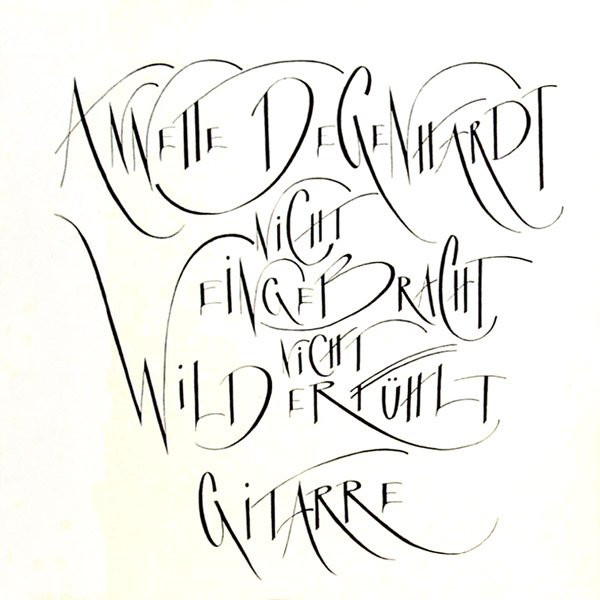 ANNETTE DEGENHARDT
NiCHT
EiNGEBRACHT
NiCHT
WiLD ERFÜHLT
GiTARRE